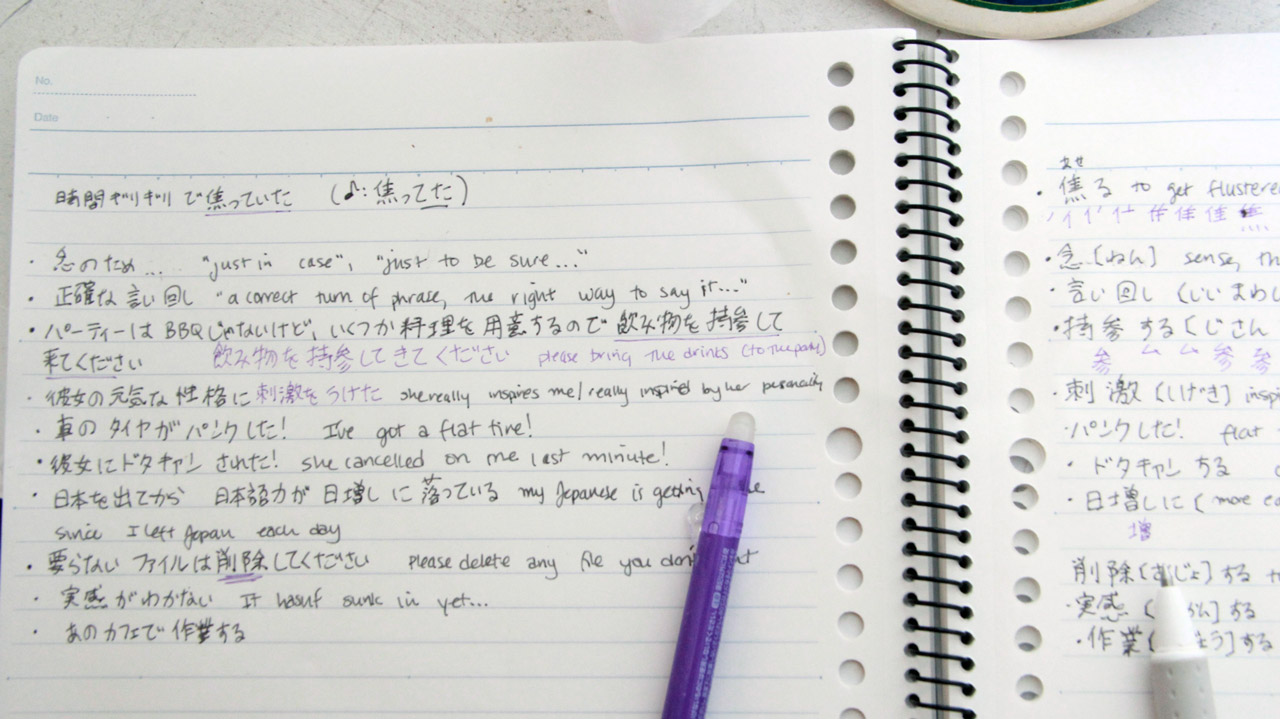 No.
Date
時間ギリギリで焦っていた (♪:焦ってた)
・念のため... "just in case", "just to be sure..."
・正確な言い回し "a correct turn of phrase, the right way to say it..."
・パーティーはBBQじゃないけど、いくつか料理を用意するので飲み物を持参して
来てください 飲み物を持参してきてください please bring the drinks (to the party)
・彼女の元気な性格に刺激をうけた she really inspires me/really inspired by her personality
・車のタイヤがパンクした! I've got a flat tire!
・彼女にドタキャンされた! she cancelled on me last minute!
・日本を出てから 日本語力が日増しに落っている my Japanese is getting
since I left Japan each day
・要らないファイルは削除してください please delete any file you don't
・実感がわかない It hasn't sunk in yet...
・あのカフェで作業する
あせ
・焦る to get flustere
ノ イ イ' 什 隹 隹 隹 焦
・念[ねん] sense, th
・言い回し (いいまわし
・持参する(じさん
参 ム ム 参 参
・刺激(しげき] insp
・パンクした! flat
・ドタキャンする
・日増しに(more
増
削除[さじょ]する
・実感 する
・作業 ょう]する